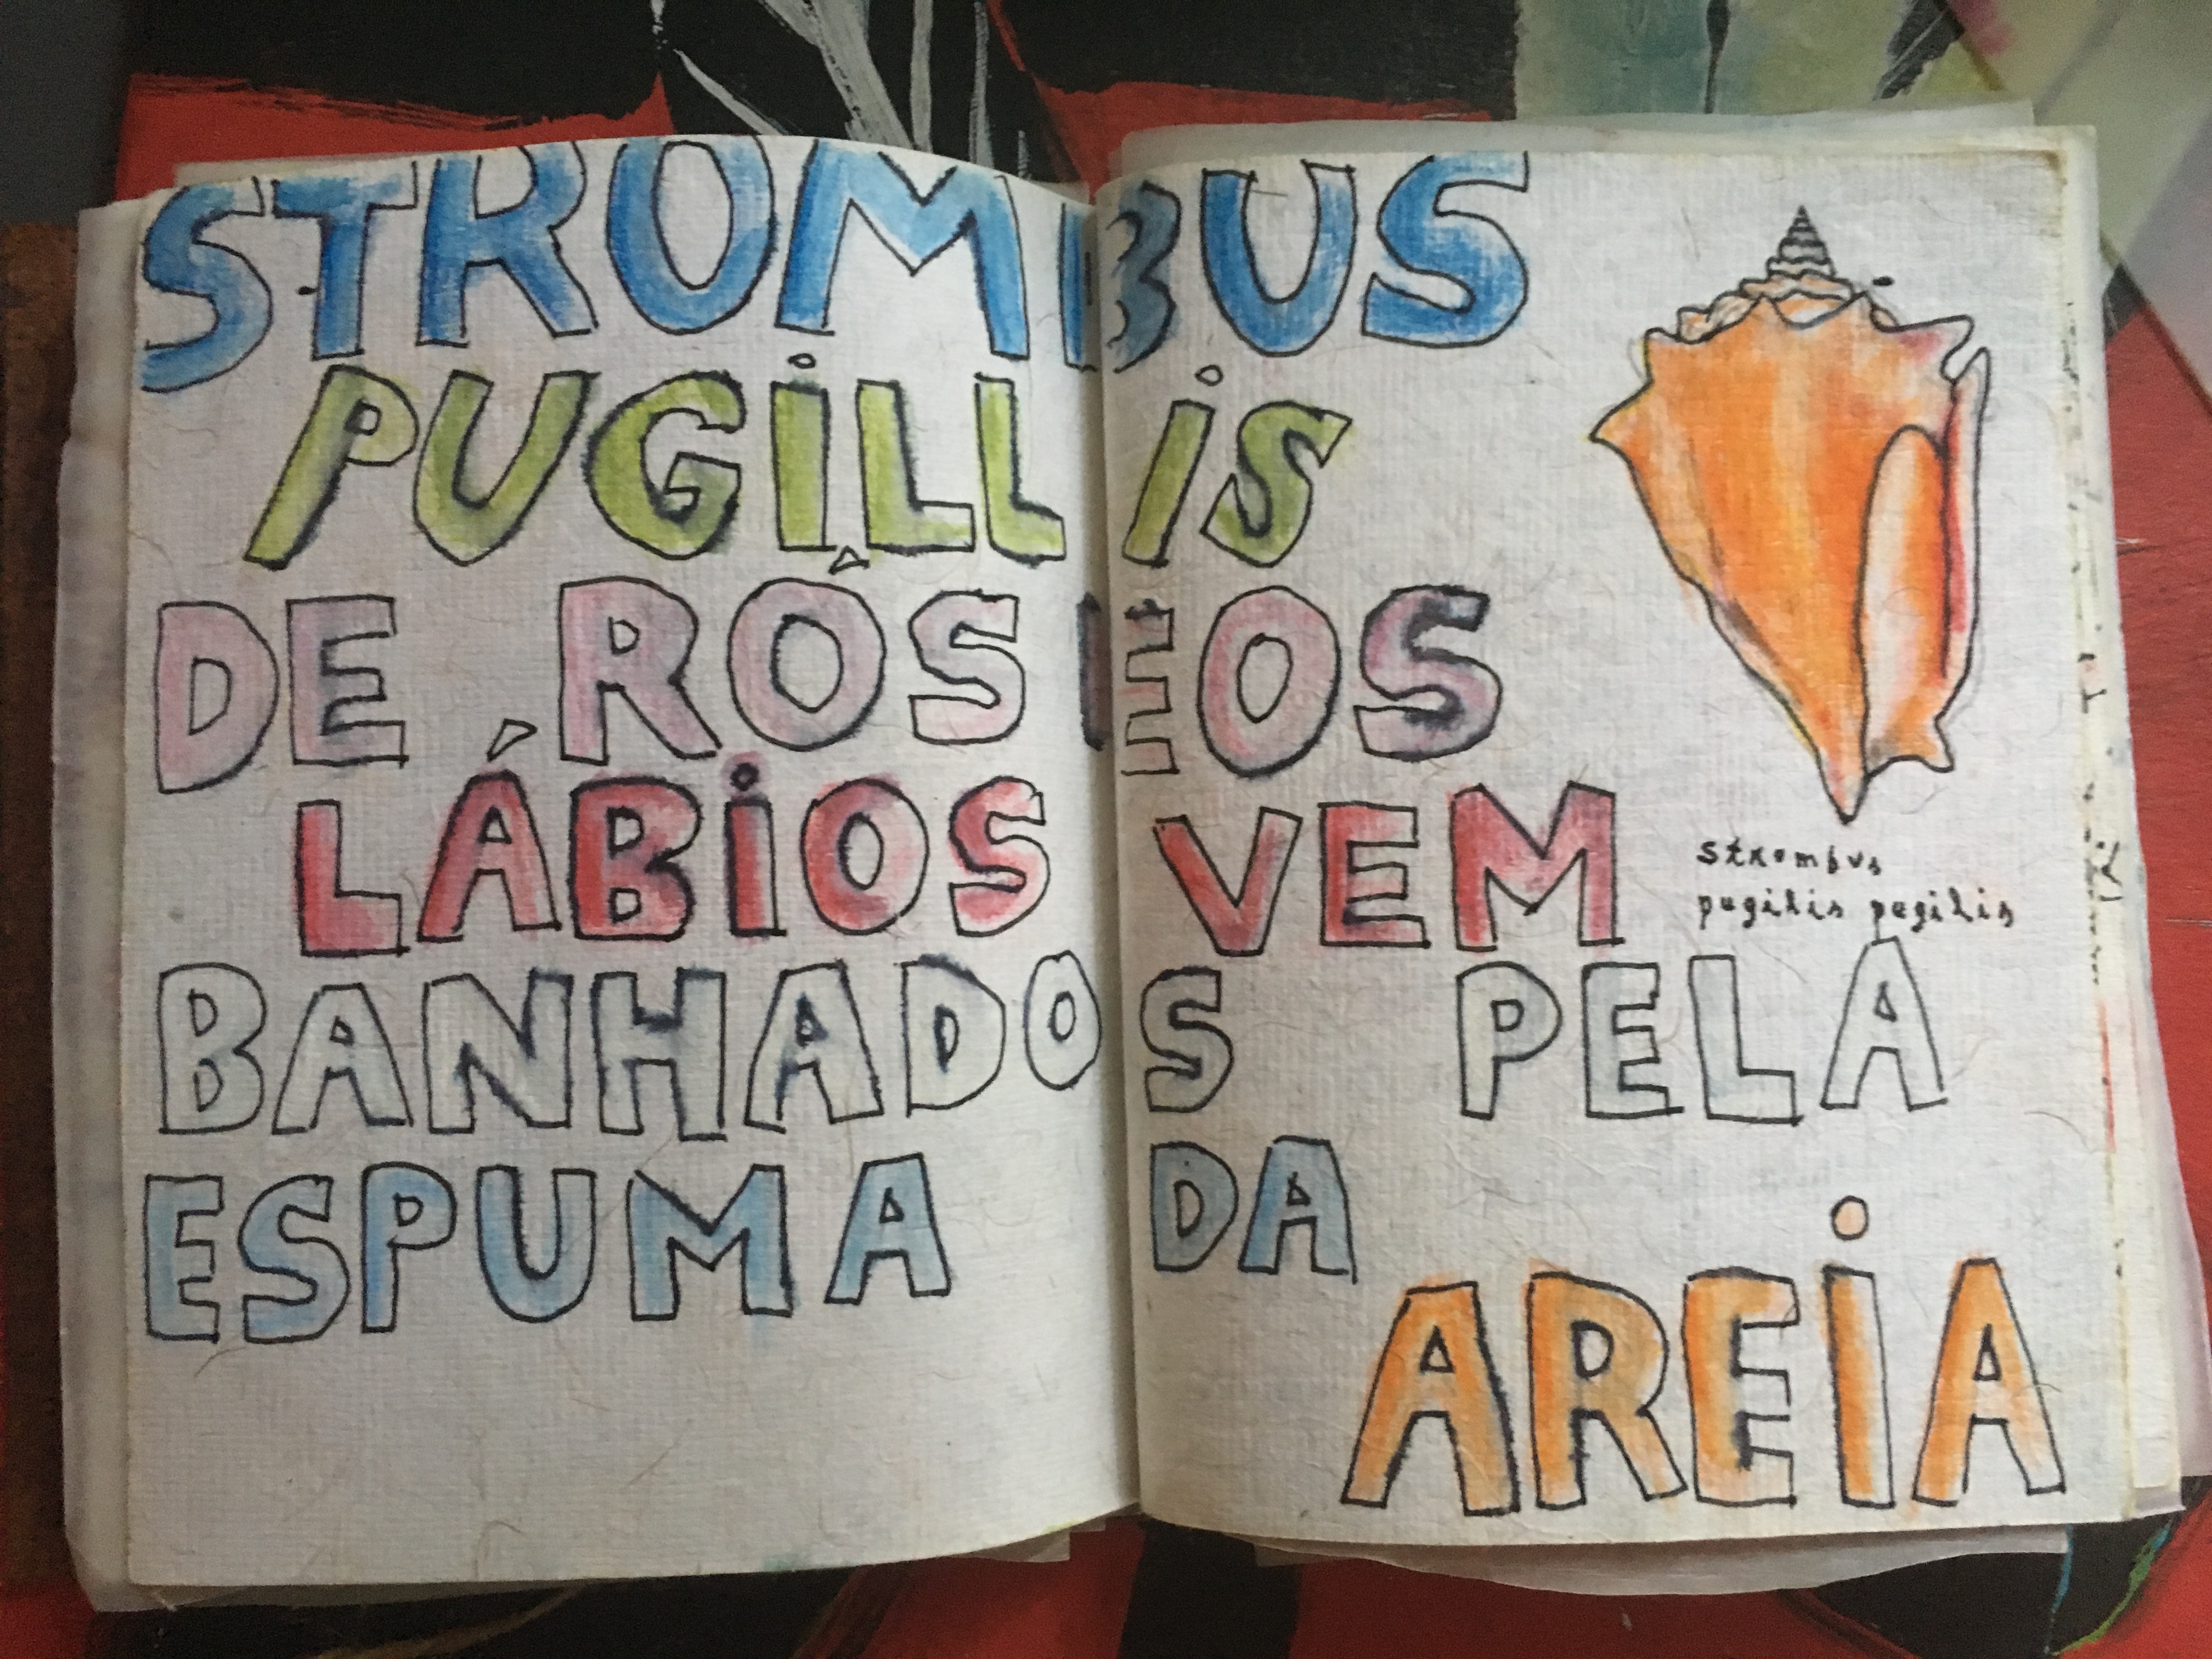 STROMBUS
PUGILLIS
DE RÓSEOS
LÁBIOS VEM
BANHADOS PELA
ESPUMA DA
AREIA
strombus
pugilis pugilis